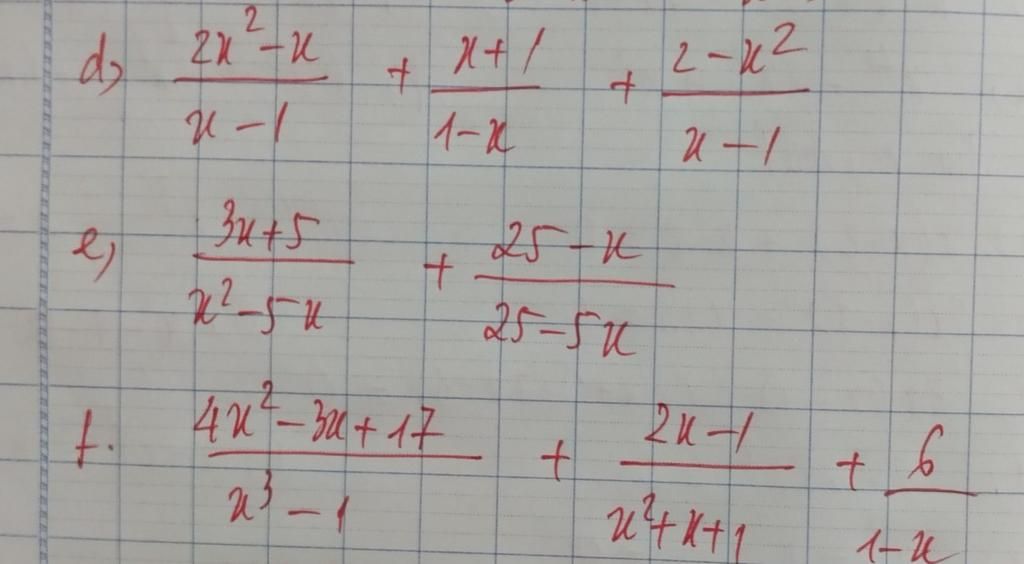 d, \frac{2x^2-x}{x-1} + \frac{x+1}{1-x} + \frac{2-x^2}{x-1}
e, \frac{3x+5}{x^2-5x} + \frac{25-x}{25-5x}
f. \frac{4x^2-3x+17}{x^3-1} + \frac{2x-1}{x^2+x+1} + \frac{6}{1-x}